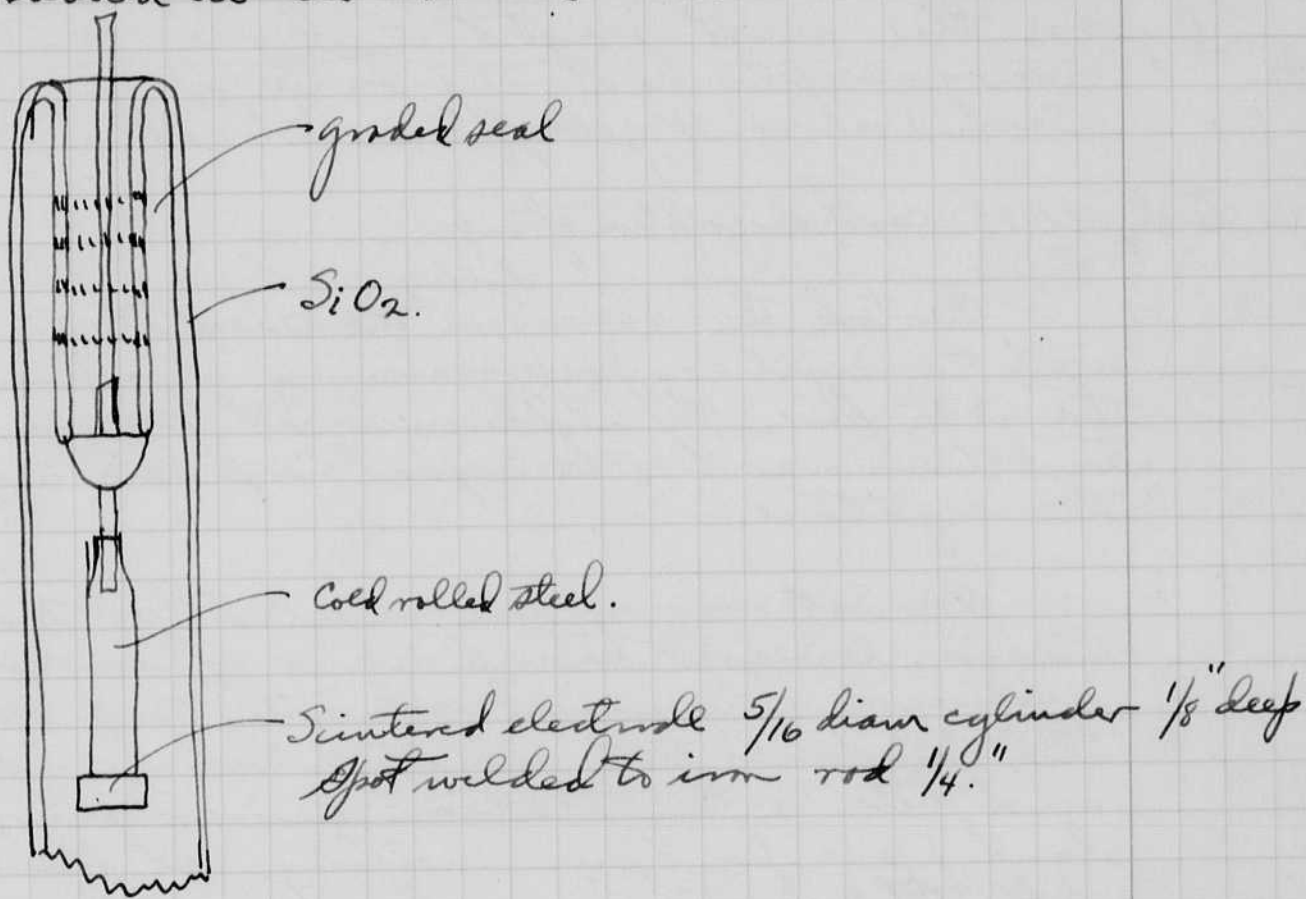 graded seal
SiO2.
Cold rolled steel.
Sintered electrode 5/16 diam cylinder 1/8" deep
Spot welded to iron rod 1/4."